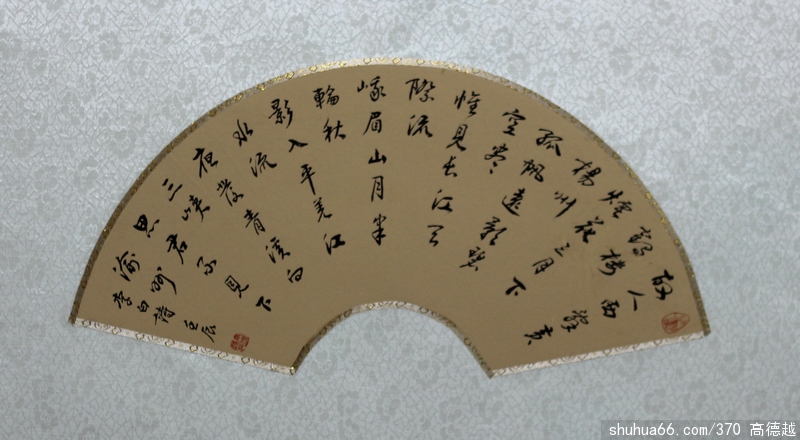 故人西辞黄
鹤楼
煙花三月下
楊州
孤帆遠影碧
空尽
惟見长江天
際流
峨眉山月半
輪秋
影入平羌江
水流
夜發青溪向
三峡
思君不見下
渝州
李白詩 壬辰
shuhua66.com/370 高德越